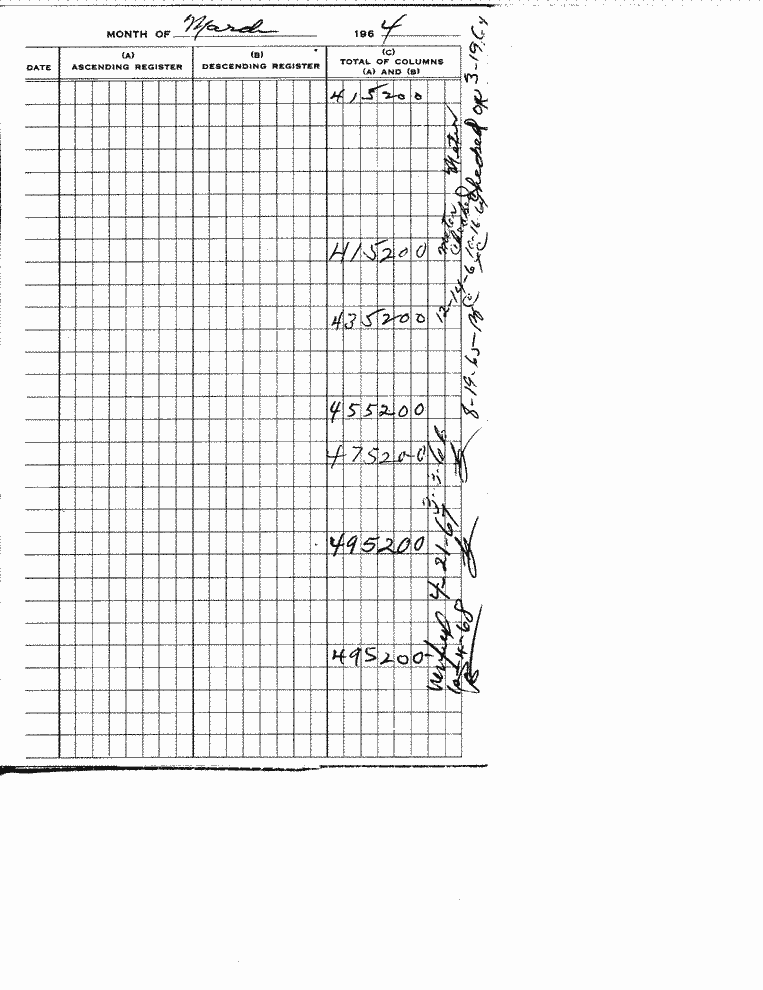 MONTH OF March 1964
DATE
(A)
ASCENDING REGISTER
(B)
DESCENDING REGISTER
(C)
TOTAL OF COLUMNS
(A) AND (B)
415200
415200
435200
455200
475200
495200
495200
Meter
Checked OK 3-19-64
Meter
8-19-65
3-3-66
4-21-67
Verified
10-4-68